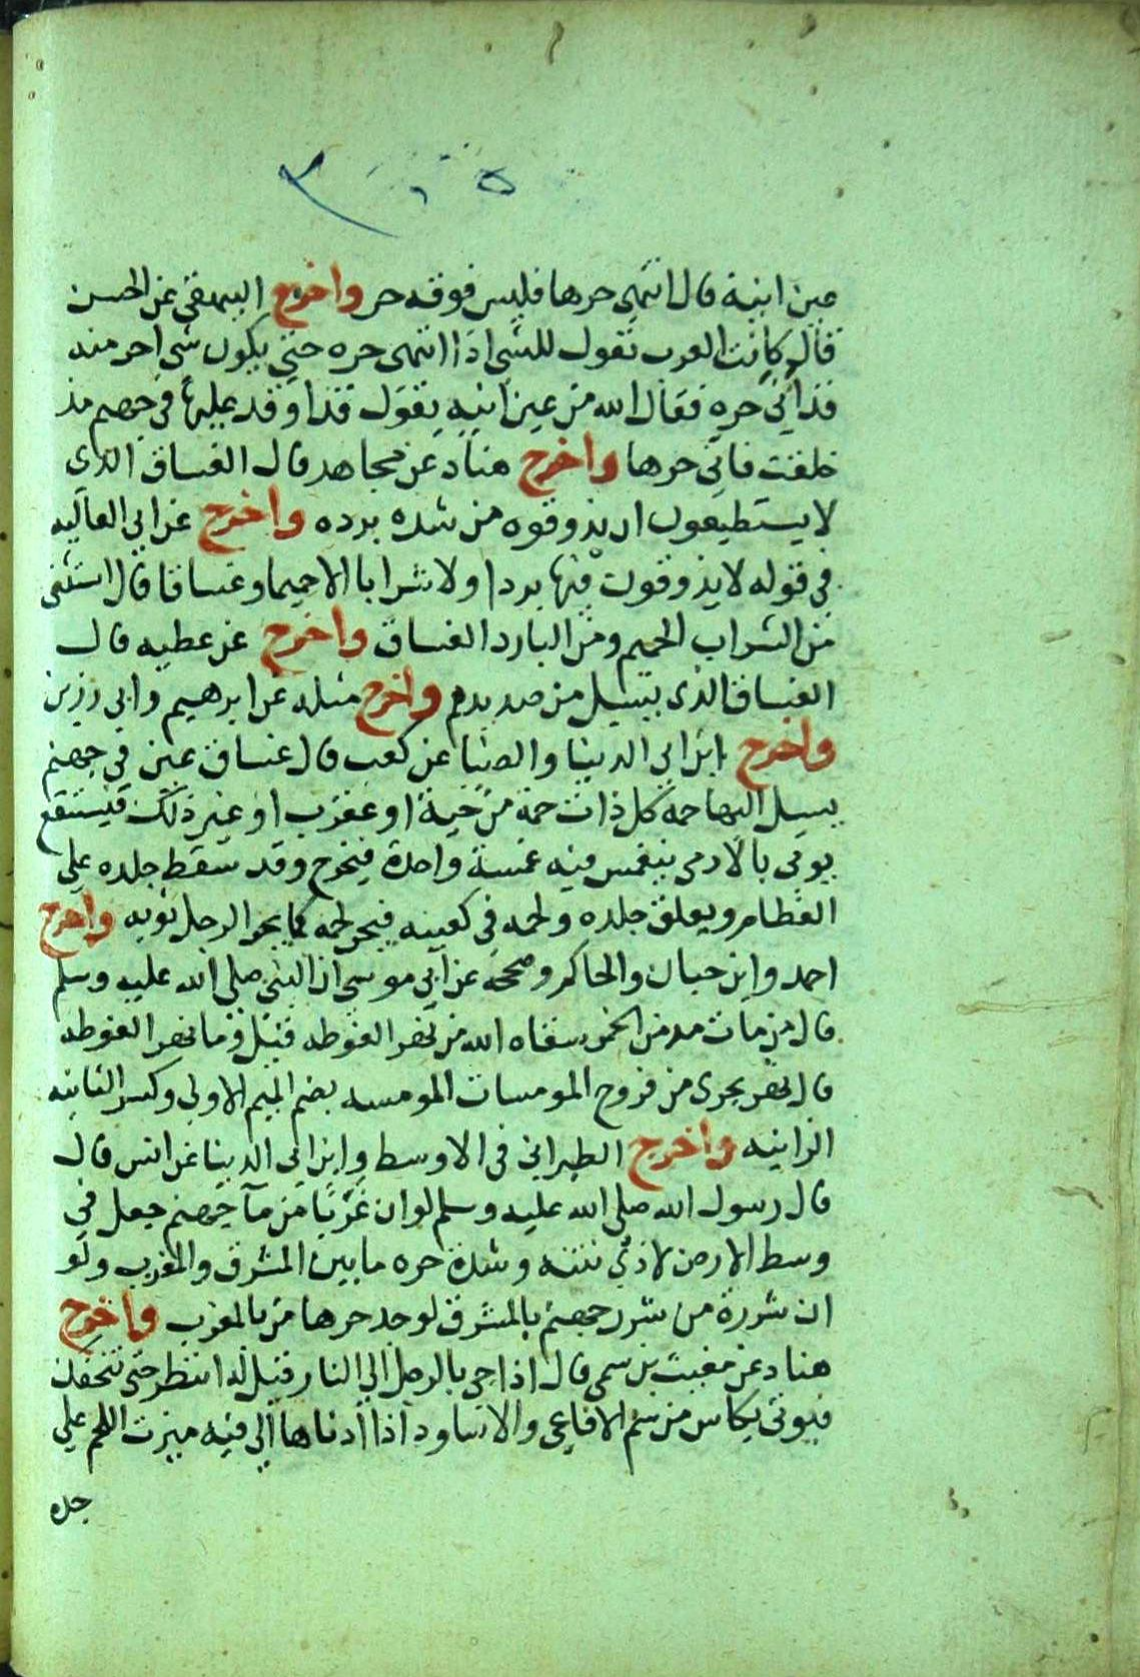 عين انية قال انتهى حرها فليس فوقه حر واخرج البيهقى عن الحسن
قال كانت العرب تقول للشى اذا انتهى حره حتى يكون شى احر منه
قد انى حره فقال الله من عين انيه يقول قد اوقد عليها فى جهنم مذ
خلقت فانى حرها واخرج هناد عن مجاهد قال الغساق الذي
لا يستطيعون ان يذوقوه من شده برده واخرج عن ابى العاليه
فى قوله لا يذوقون فيها بردا ولا شرابا الا حميما وغساقا قال استثنى
من الشراب الحميم ومن البارد الغساق واخرج عن عطيه قال
الغساق الذى يسيل من صديدهم واخرج مثله عن ابرهيم وابى رزين
واخرج ابن ابى الدينا والضيا عن كعب قال غساق عين فى جهنم
يسيل اليها حمه كل ذات حمة من حية او عقرب او غير ذلك فيستنقع
يوتى بالادمى فيغمس فيه غمسة واحدة فيخرج وقد سقط جلده على
العظام ويعلق جلده ولحمه فى كعبيه فيجر لحمه كما يجر الرجل ثوبه واخرج
احمد وابن حبان والحاكم وصححه عن ابى موسى ان النبى صلى الله عليه وسلم
قال من مات مدمن الخمر سقاه الله من نهر الغوطه قيل وما نهر الغوطه
قال نهر يجرى من فروج المومسات المومسه بضم الميم الاولى وكسر الثانيه
الزانيه واخرج الطبرانى فى الاوسط وابن ابى الدينا عن انس قال
قال رسول الله صلى الله عليه وسلم لو ان غربا من ماء جهنم جعل فى
وسط الارض لاذى نتنه وشدة حره ما بين المشرق والمغرب ولو
ان شررة من شرر جهنم بالمشرق لوجد حرها من بالمغرب واخرج
هناد عن مغيث بن سمى قال اذا جى بالرجل الى النار قيل له انتظر حتى نتحفك
فيوتى بكاس من سم الافاعى والاساود اذا ادناها الى فيه ميزت اللحم على
حده